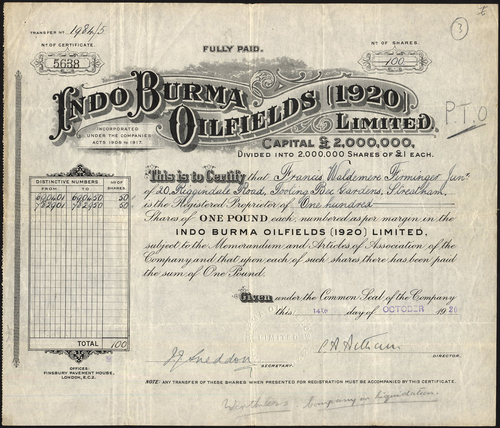 ③
TRANSFER Nº 1984/5
Nº OF CERTIFICATE.
5638
FULLY PAID.
Nº OF SHARES.
100
INDO BURMA
OILFIELDS (1920)
LIMITED.
P.T.O
INCORPORATED
UNDER THE COMPANIES
ACTS 1908 TO 1917.
CAPITAL £2,000,000,
DIVIDED INTO 2,000,000 SHARES OF £1 EACH.
This is to Certify that Francis Waldemere Ferminger Junr
of 20, Road, Gardens, Streatham,
is the Registered Proprietor of One hundred
Shares of ONE POUND each, numbered as per margin in the
INDO BURMA OILFIELDS (1920) LIMITED,
subject to the Memorandum and Articles of Association of the
Company and that upon each of such shares there has been paid
the sum of One Pound.
Given under the Common Seal of the Company
this 14th day of OCTOBER 1920
DISTINCTIVE NUMBERS
Nº OF SHARES
FROM TO
50
50
TOTAL 100
SECRETARY.
DIRECTOR.
OFFICES:
FINSBURY PAVEMENT HOUSE,
LONDON, E.C.2.
NOTE: ANY TRANSFER OF THESE SHARES WHEN PRESENTED FOR REGISTRATION MUST BE ACCOMPANIED BY THIS CERTIFICATE.
Worthless Company in liquidation.